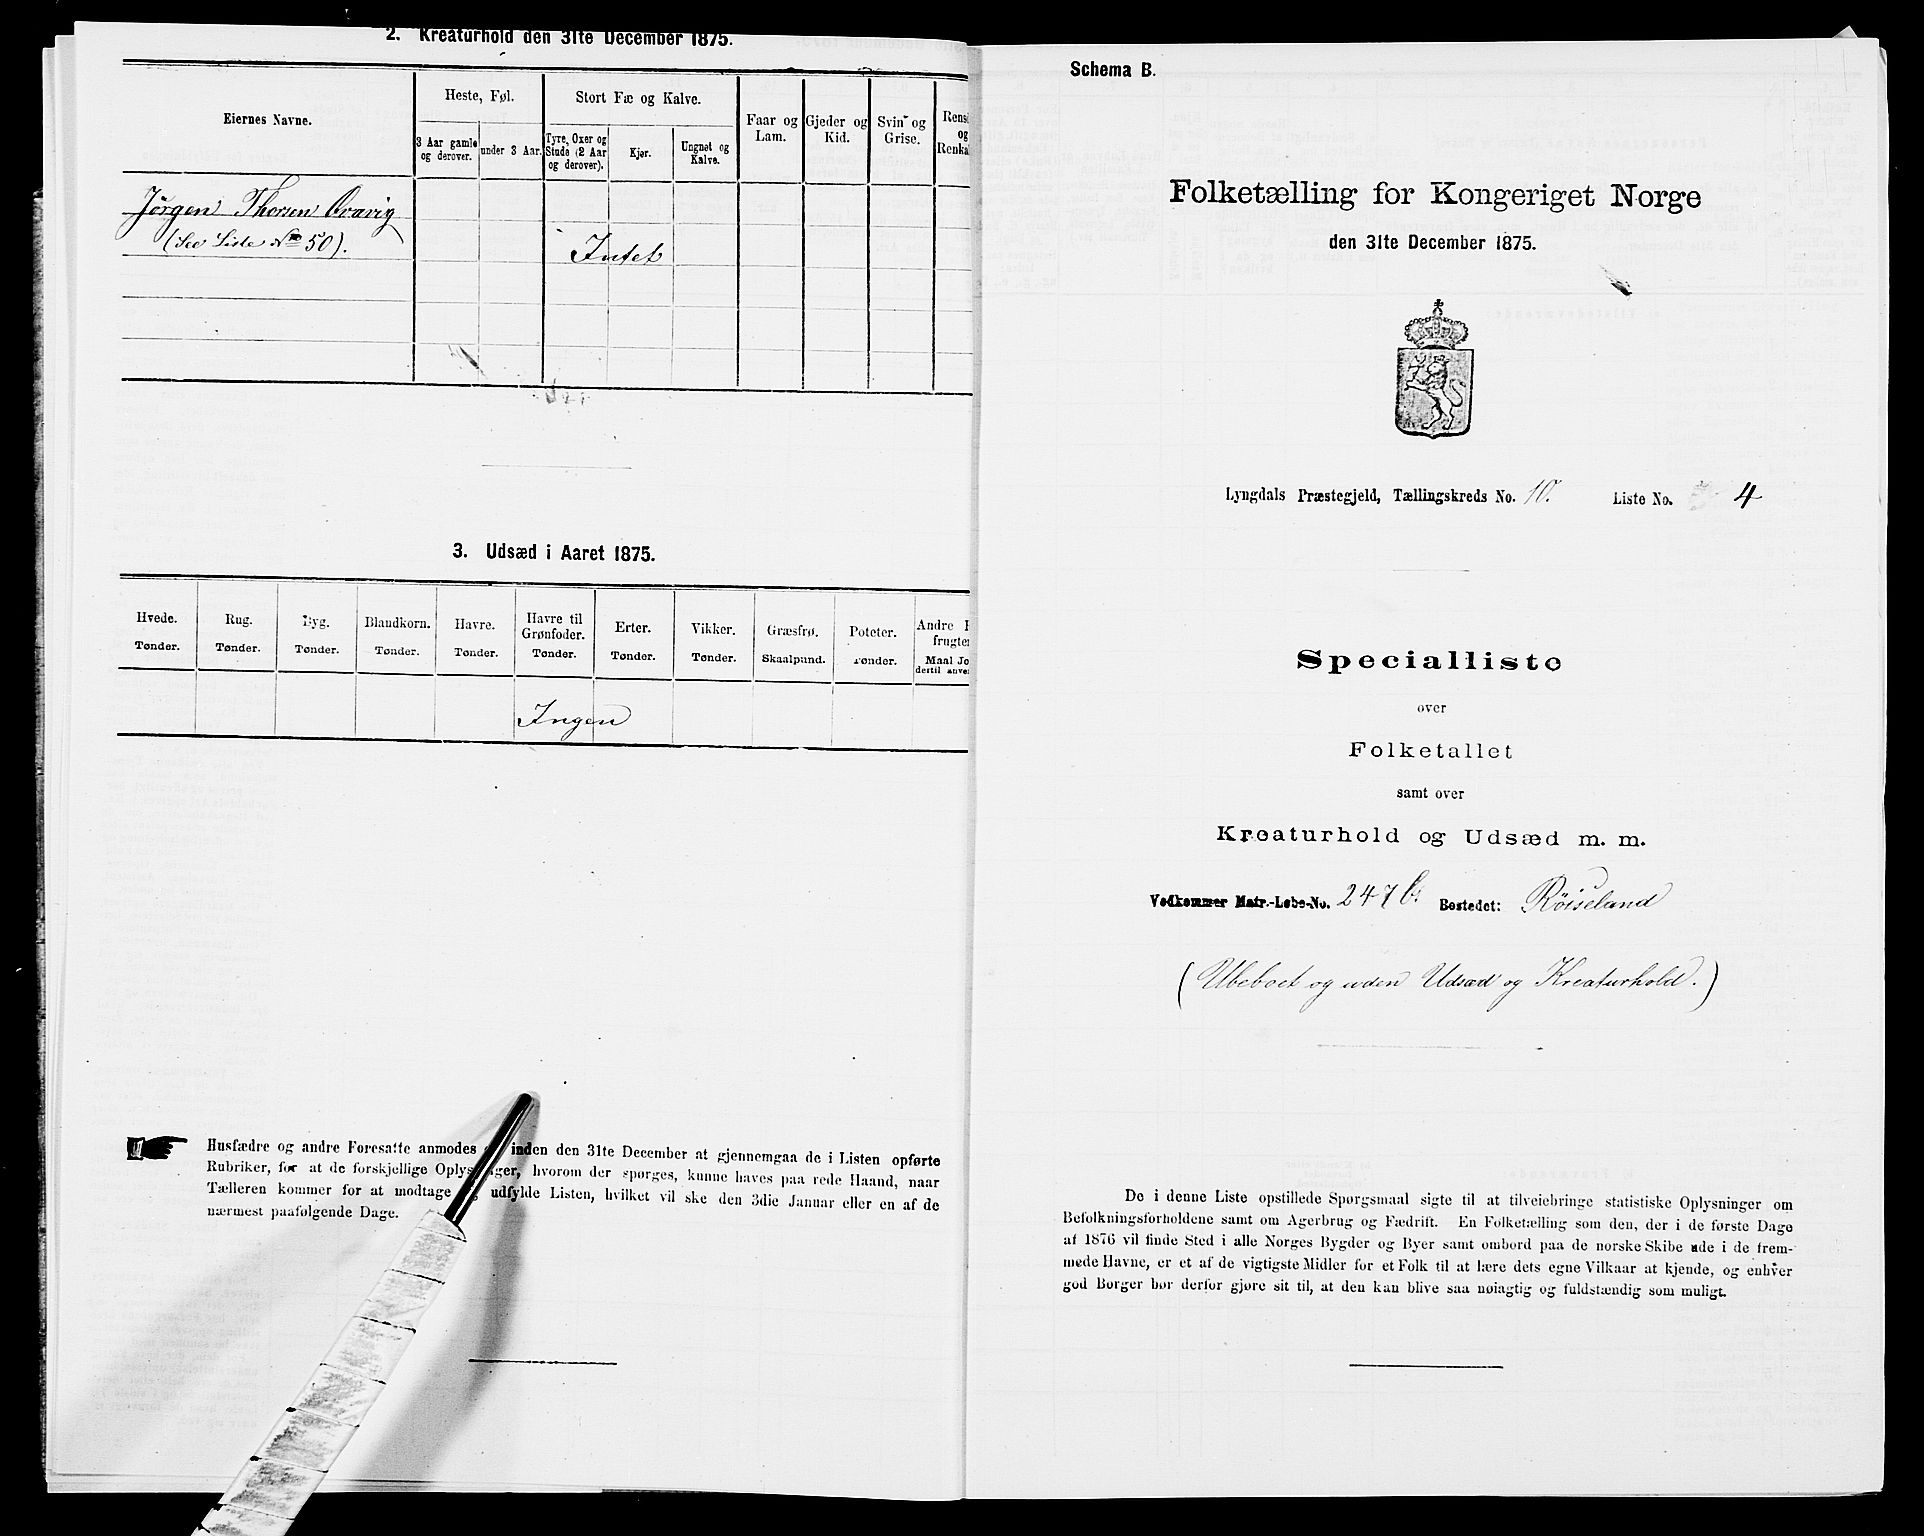 2. Kreaturhold den 31te December 1875.
Eiernes Navne.
Heste, Føl.
Stort Fæ og Kalve.
Faar og Lam.
Gjeder og Kid.
Svin og Grise.
3 Aar gamle og derover.
under 3 Aar.
Tyre, Oxer og Stude (2 Aar og derover).
Kjør.
Ungnøt og Kalve.
Jørgen Thorsen Qvavig
(See Liste No 50).
Intet
3. Udsæd i Aaret 1875.
Hvede. Rug. Byg. Blandkorn. Havre. Havre til Grønfoder. Erter. Vikker. Græsfrø. Poteter. Andre
Tønder. Tønder. Tønder. Tønder. Tønder. Tønder. Tønder. Tønder. Skaalpund. Tønder. Maal
Ingen
Husfædre og andre Foresatte anmodes inden den 31te December at gjennemgaa de i Listen opførte
Rubriker, for at de forskjellige hvorom der spørges, kunne haves paa rede Haand, naar
Tælleren kommer for at modtage udfylde Listen, hvilket vil ske den 3die Januar eller en af de
nærmest paafølgende Dage.
Schema B.
Folketælling for Kongeriget Norge
den 31te December 1875.
Lyngdals Præstegjeld, Tællingskreds No. 10. Liste No. 4
Specialliste
over
Folketallet
samt over
Kreaturhold og Udsæd m. m.
Vedkommer Matr.-Løbe-No. 247 b. Bostedet: Røiseland
(Ubeboet og uden Udsæd og Kreaturhold.)
De i denne Liste opstillede Spørgsmaal sigte til at tilveiebringe statistiske Oplysninger om
Befolkningsforholdene samt om Agerbrug og Fædrift. En Folketælling som den, der i de første Dage
af 1876 vil finde Sted i alle Norges Bygder og Byer samt ombord paa de norske Skibe ude i de frem-
mede Havne, er et af de vigtigste Midler for et Folk til at lære dets egne Vilkaar at kjende, og enhver
god Borger bør derfor gjøre sit til, at den kan blive saa nøiagtig og fuldstændig som muligt.